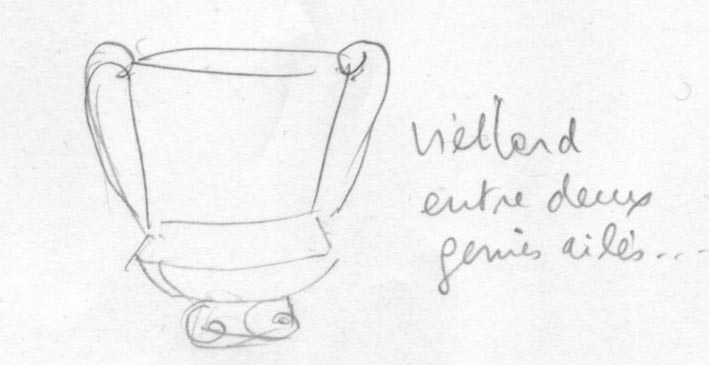 viellard
entre deux
genies ailés...